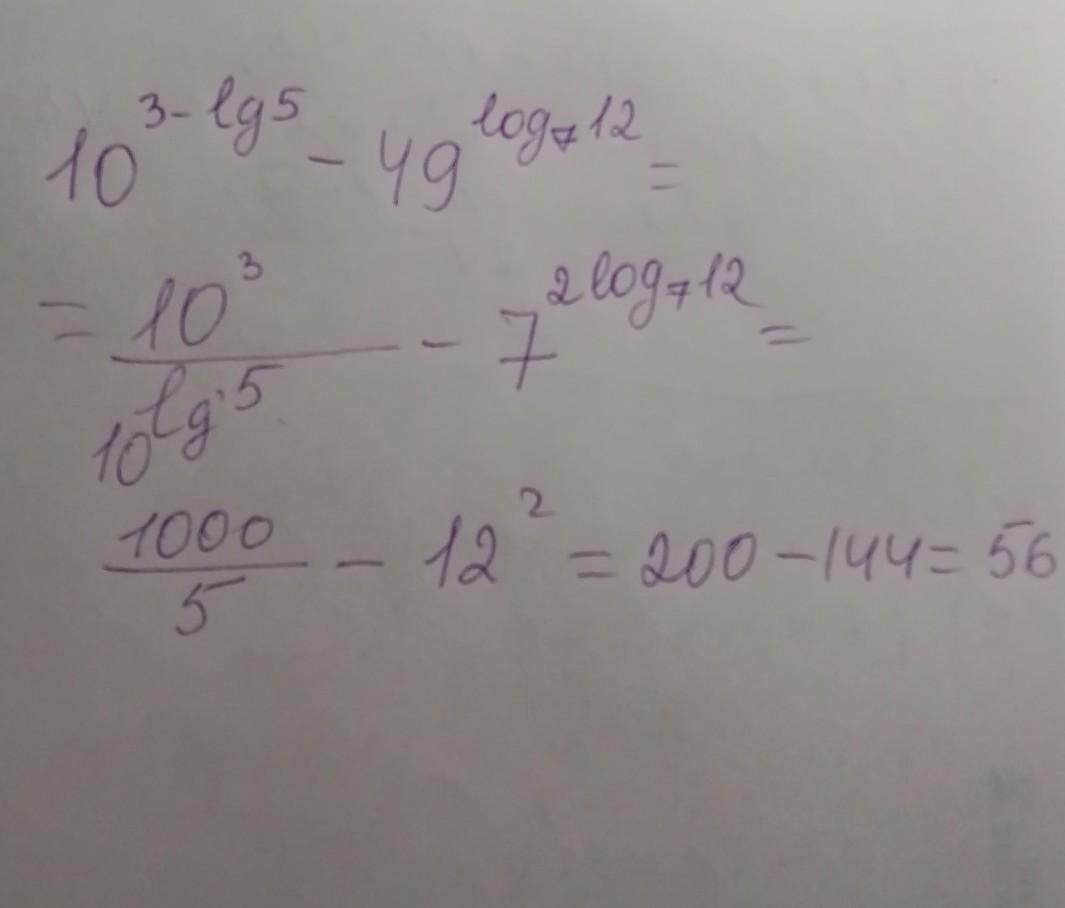 10^{3-lg5} - 49^{log_7 12} =
= \frac{10^3}{10^{lg 5}} - 7^{2log_7 12} =
\frac{1000}{5} - 12^2 = 200 - 144 = 56